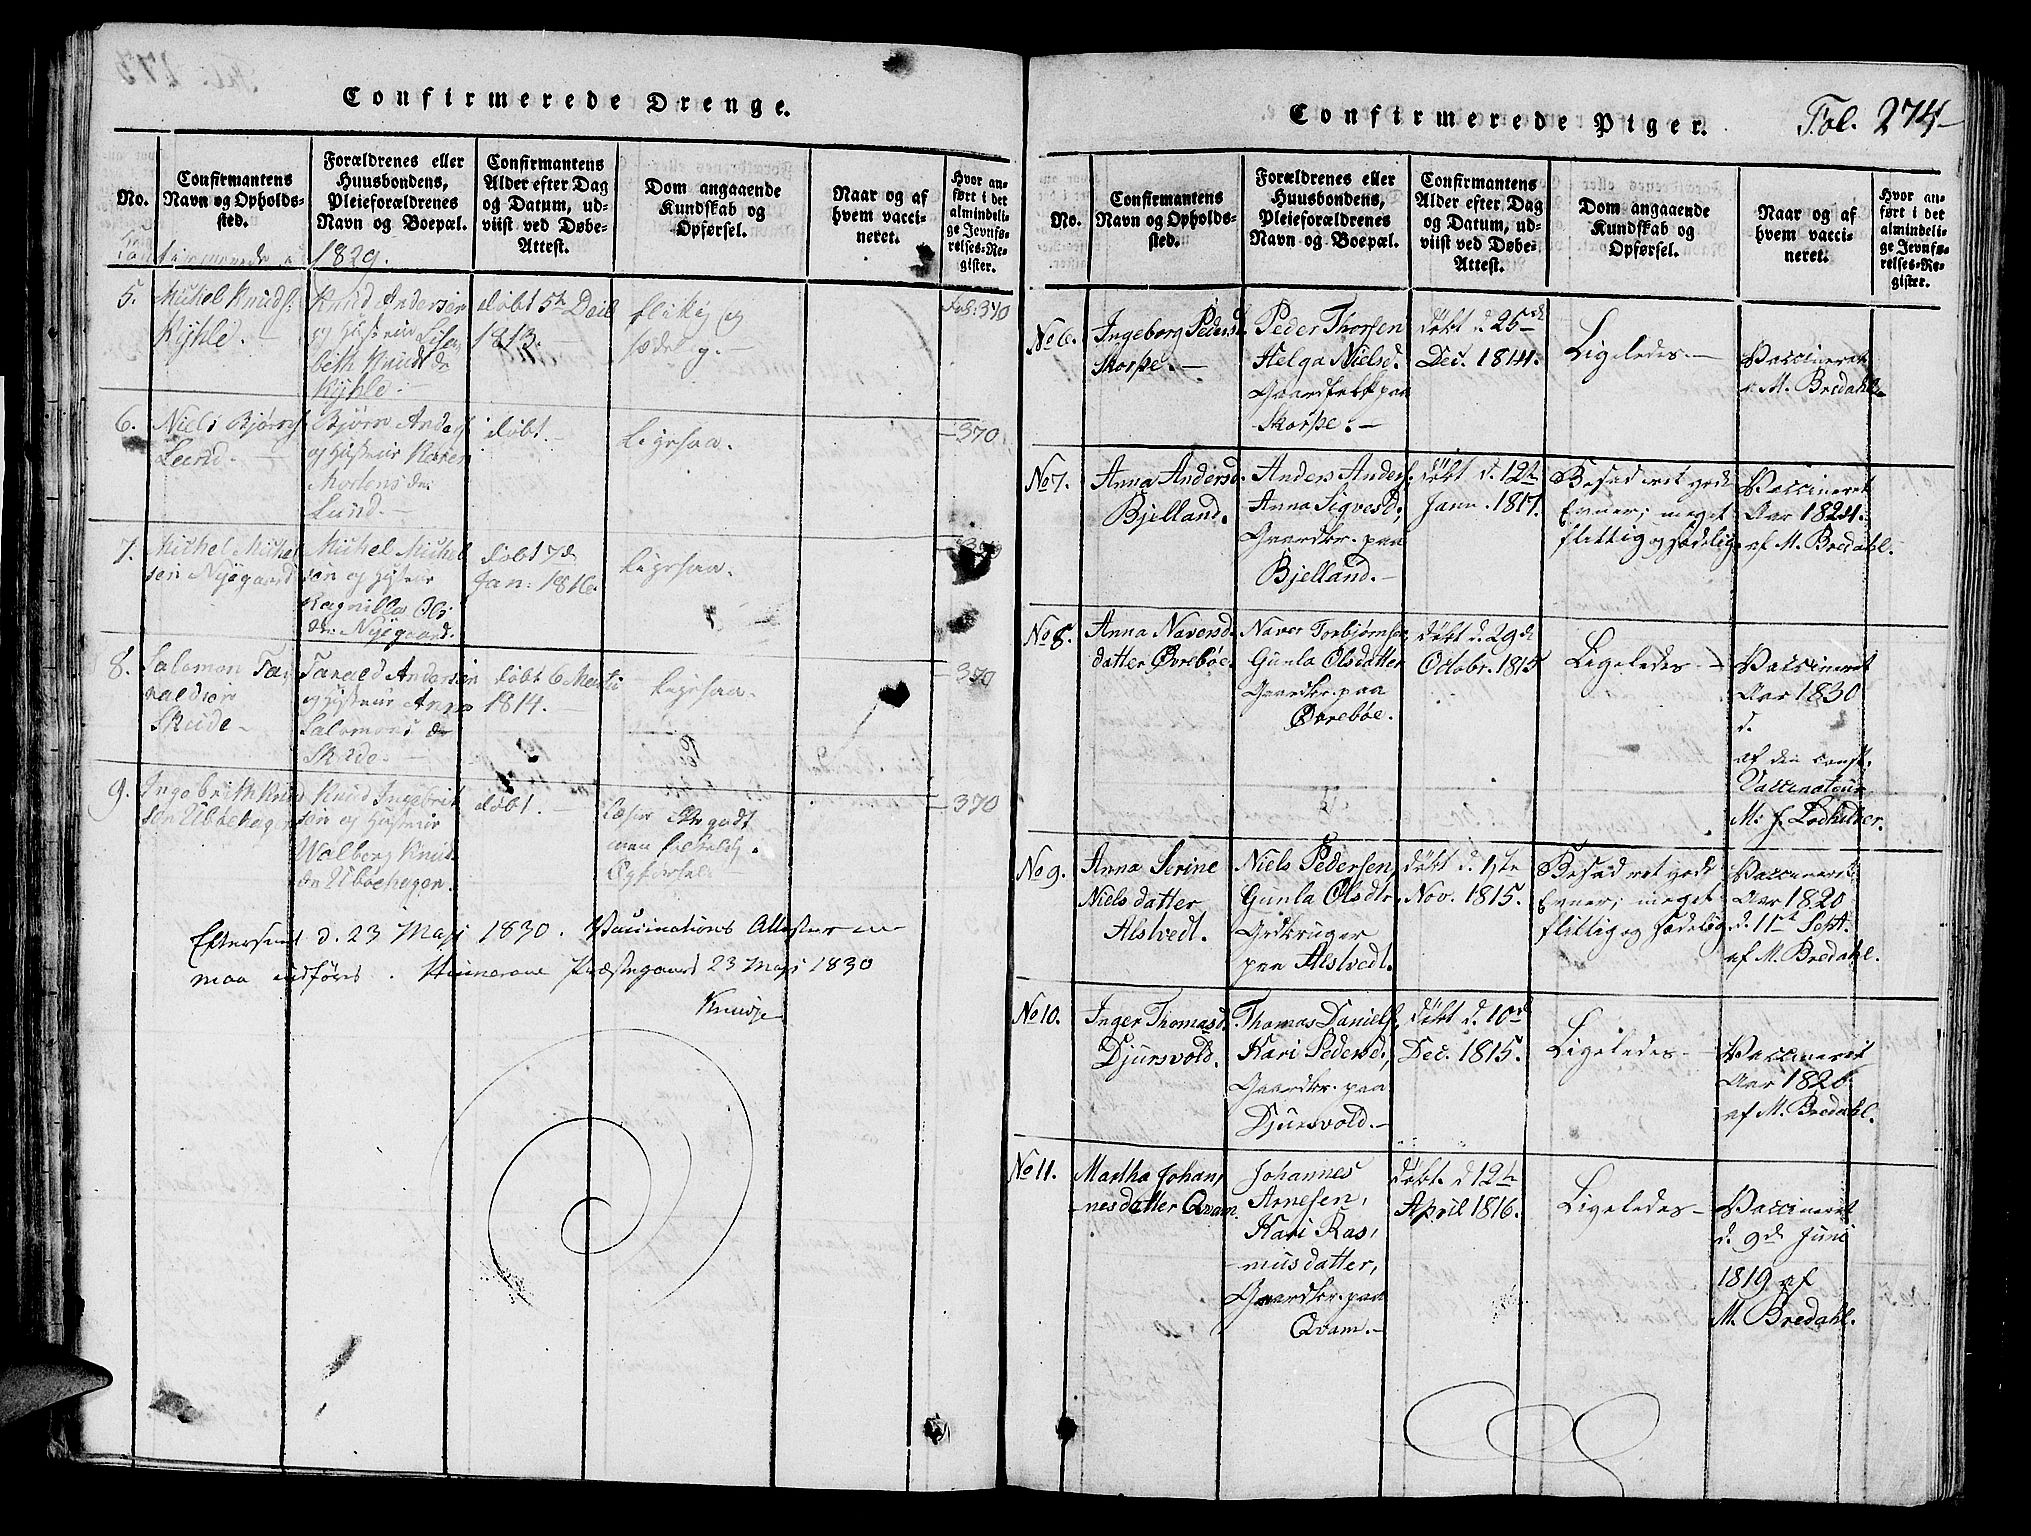 Confirmerede Drenge.
No.
Confirmantens
Navn og Opholds-
sted.
Forældrenes eller
Huusbondens,
Pleieforældrenes
Navn og Boepæl.
Confirmantens
Alder efter Dag
og Datum, ud-
viist ved Døbe-
Attest.
Dom angaaende
Kundskab og
Opførsel.
Naar og af
hvem vacci-
neret.
Hvor an-
ført i det
almindeli-
ge Jevnfø-
relses-Re-
gister.
Confirmerede i 1829.
5.
Michel Knuds:
Kyhle. —
Knud Andersen
og Hustrue Lisa-
beth Knuds dr
Kyhle.
døbt 5te
1813.
flitig og
sædelig.
Fol: 370
6.
Niels Bjørns
Lund. —
Bjørn Anders
og Hustrue Karen
Mortens dr.
Lund. —
døbt —
ligesaa.
— 370
7.
Michel Michel
sen Nygaard
Michel Michel
sen og Hustrue
Ragnilla Ols
dr. Nygaard.
døbt 7de
Jan: 1816.
ligesaa.
8.
Salomon Ta-
raldsen
Skude —
Tarald Andersen
og Hustrue Anna
Salomons dr
Skude. —
døbt 6 Martii
1814. —
ligesaa.
— 370
9.
Ingebrith Knud
sen Ubøehagen
Knud Ingebrit
sen og Hustrue
Walborg Knuds
dr Ubøehagen.
døbt. —
læser godt
men
Opførsel.
— 370
Eftersendt d. 23 Maji 1830. Vaccinations Attesterne
maa anføres. Præstegaard 23 Maji 1830
Confirmerede Piger.
Fol. 274
No.
Confirmantens
Navn og Opholds-
sted.
Forældrenes eller
Huusbondens,
Pleieforældrenes
Navn og Boepæl.
Confirmantens
Alder efter Dag
og Datum, ud-
viist ved Døbe-
Attest.
Dom angaaende
Kundskab og
Opførsel.
Naar og af
hvem vacci-
neret.
Hvor an-
ført i det
almindeli-
ge Jevnfø-
relses-Re-
gister.
No 6.
Ingeborg Pedersd.
Skorpe. —
Peder Thorsen
Helga Nielsd.
Gaardfolk paa
Skorpe. —
Døbt d. 25de
Dec. 1814.
Ligeledes —
Vaccineret
M. Bredahl.
No 7.
Anna Andersd.
Bjelland.
Anders Anders.
Anna Sigvesd,
Gaardbr. paa
Bjelland. —
Døbt d. 12te
Janu. 1817.
Besad ret gode
Evner; meget
flittig og sædelig.
Vaccineret
Aar 1824.
af M. Bredahl.
No 8.
Anna Naversd
datter Øvrebøe.
Naver Torbjørnsen,
Gunla Olsdatter
Gaardbr. paa
Øvrebøe.
Døbt d. 29de
Octobr. 1815
Ligeledes —
Vaccineret
Aar 1830
d.
af den const.
Vaccinateur
No 9.
Anna Serine
Nielsdatter
Alstvedt.
Niels Pedersen,
Gunla Olsdtr,
Grdbruger
paa Alstvedt.
Døbt d. 1ste
Nov. 1815.
Besad ret gode
Evner; meget
flittig og sædelig.
Vaccineret
Aar 1820
d. 11te Sept.
af M. Bredahl.
No 10.
Inger Thomasd.
Djursvold.
Thomas Daniels,
Kari Pedersd.,
Gaardbr. paa
Djursvold. —
Døbt d. 10de
Dec. 1815.
Ligeledes —
Vaccineret
Aar 1820
af M. Bredahl.
No 11.
Martha Johan,
-nesdatter Qvam.
Johannes
Arnesen,
Kari Ras,
-musdatter,
Gaardbr. paa
Qvam. —
Døbt d 12te
April 1816.
Ligeledes —
Vaccineret
d. 9de Juni
1819 af
M. Bredahl.